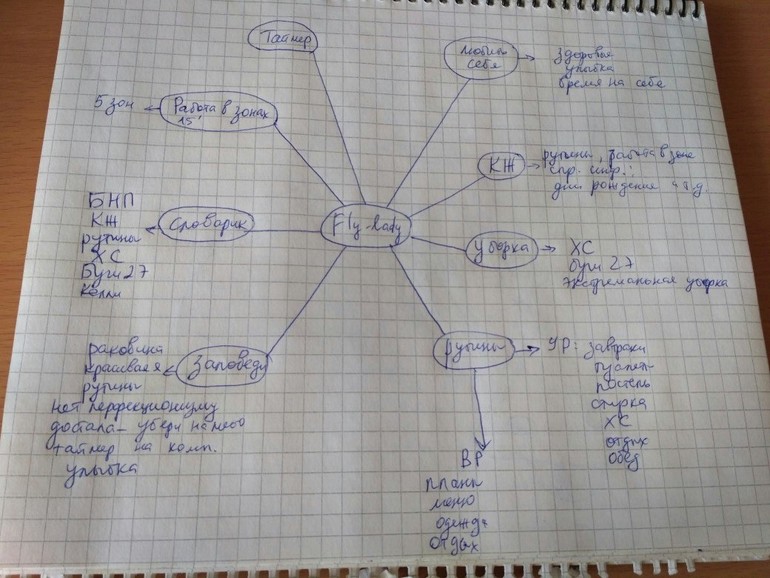 Таймер
Люблю
себя
здоровье
улыбка
время на себя
Работа в зонах
15'
5 зон
КЖ
рутины, работа в зоне
спр. инф.:
дни рождения и т.д.
Fly-Lady
Словарик
БНП
КЖ
рутины
ХС
Буги 27
Калли
уборка
ХС
буги 27
экстремальная уборка
Заповеди
раковина
красивая я
рутины
нет перфекционизму
достала – убери на место
таймер на комп.
улыбка
рутины
УР: завтраки
туалет
постель
стирка
ХС
отдых
обед
ВР
планы
меню
одежда
отдых